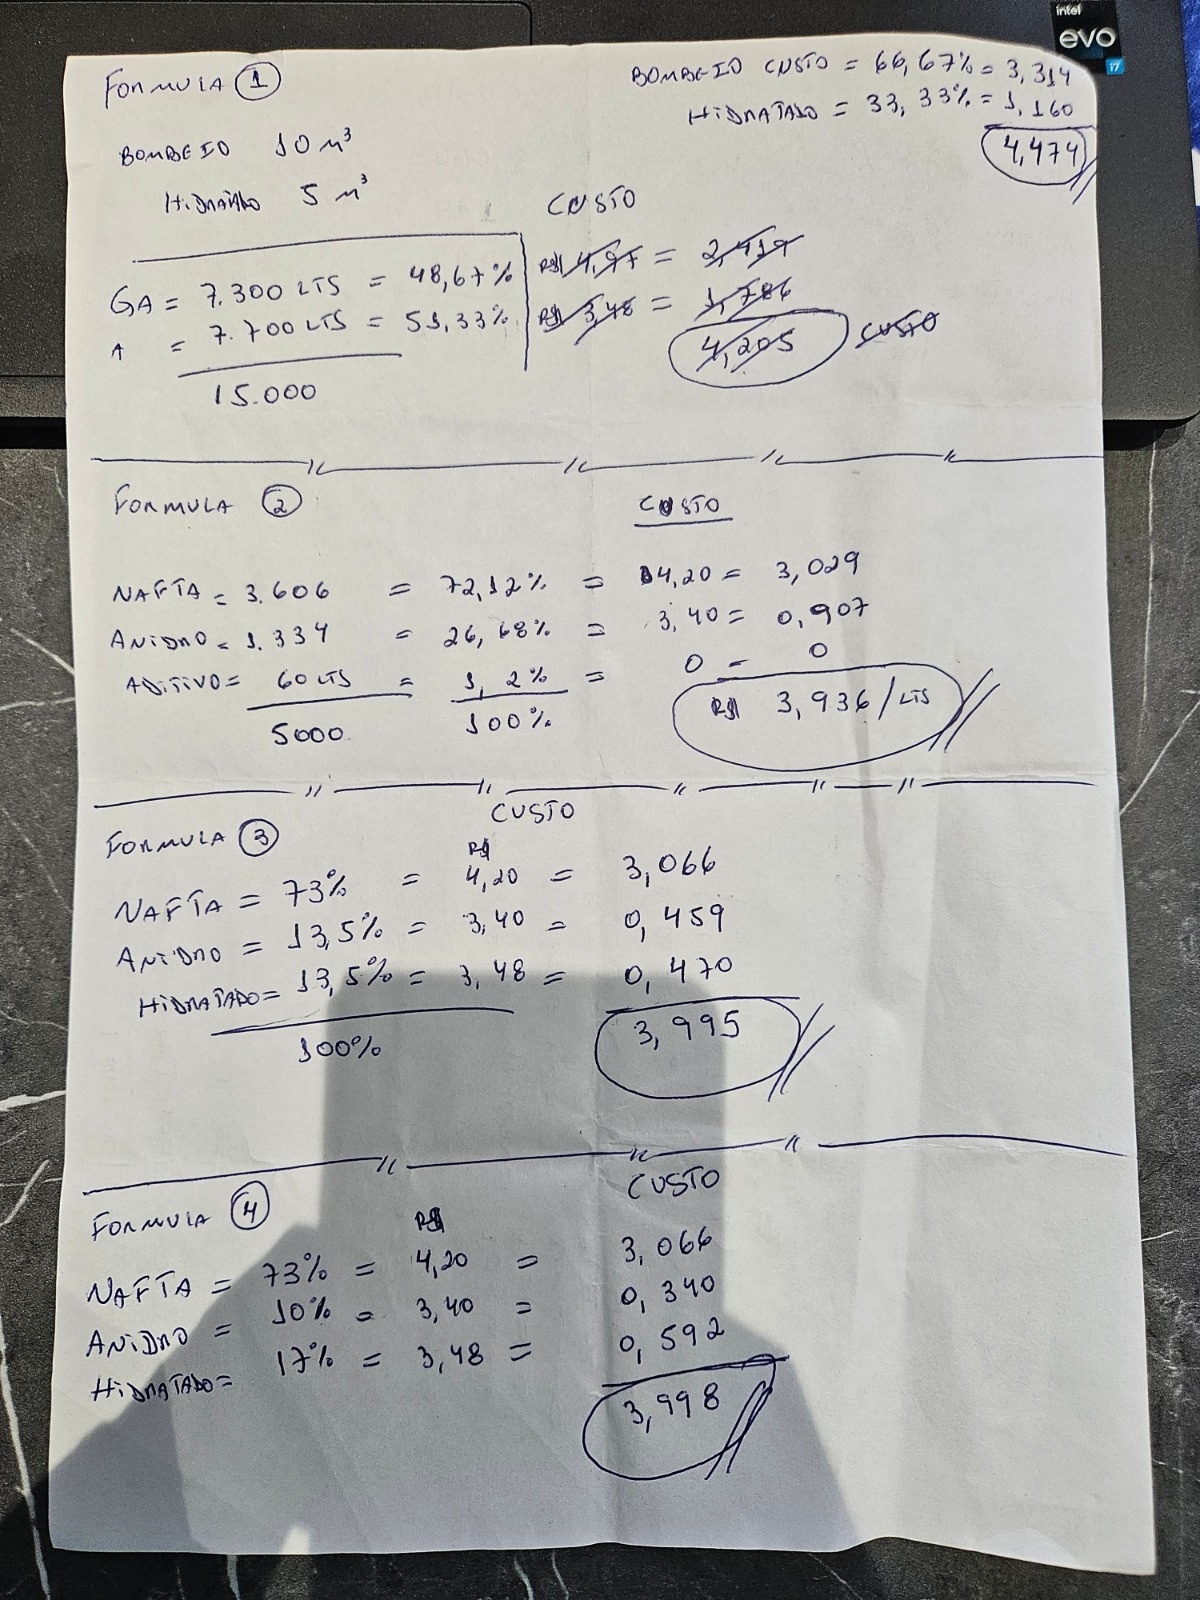 intel
evo
i7
FORMULA 1
BOMBEIO CUSTO = 66,67% = 3,314
HIDRATADO = 33,33% = 1,160
4,474
BOMBEIO 10 m³
HIDRATADO 5 m³
CUSTO
GA = 7.300 LTS = 48,67% R$ 4,97 = 2,419
A = 7.700 LTS = 51,33% R$ 3,48 = 1,786
15.000
4,205 CUSTO
FORMULA 2
CUSTO
NAFTA = 3.606 = 72,12% = 4,20 = 3,029
ANIDRO = 1.334 = 26,68% = 3,40 = 0,907
ADITIVO = 60 LTS = 1,2% = 0 = 0
5000 100% R$ 3,936/LTS
FORMULA 3
CUSTO
R$
NAFTA = 73% = 4,20 = 3,066
ANIDRO = 13,5% = 3,40 = 0,459
HIDRATADO = 13,5% = 3,48 = 0,470
100% 3,995
FORMULA 4
CUSTO
R$
NAFTA = 73% = 4,20 = 3,066
ANIDRO = 10% = 3,40 = 0,340
HIDRATADO = 17% = 3,48 = 0,592
3,998